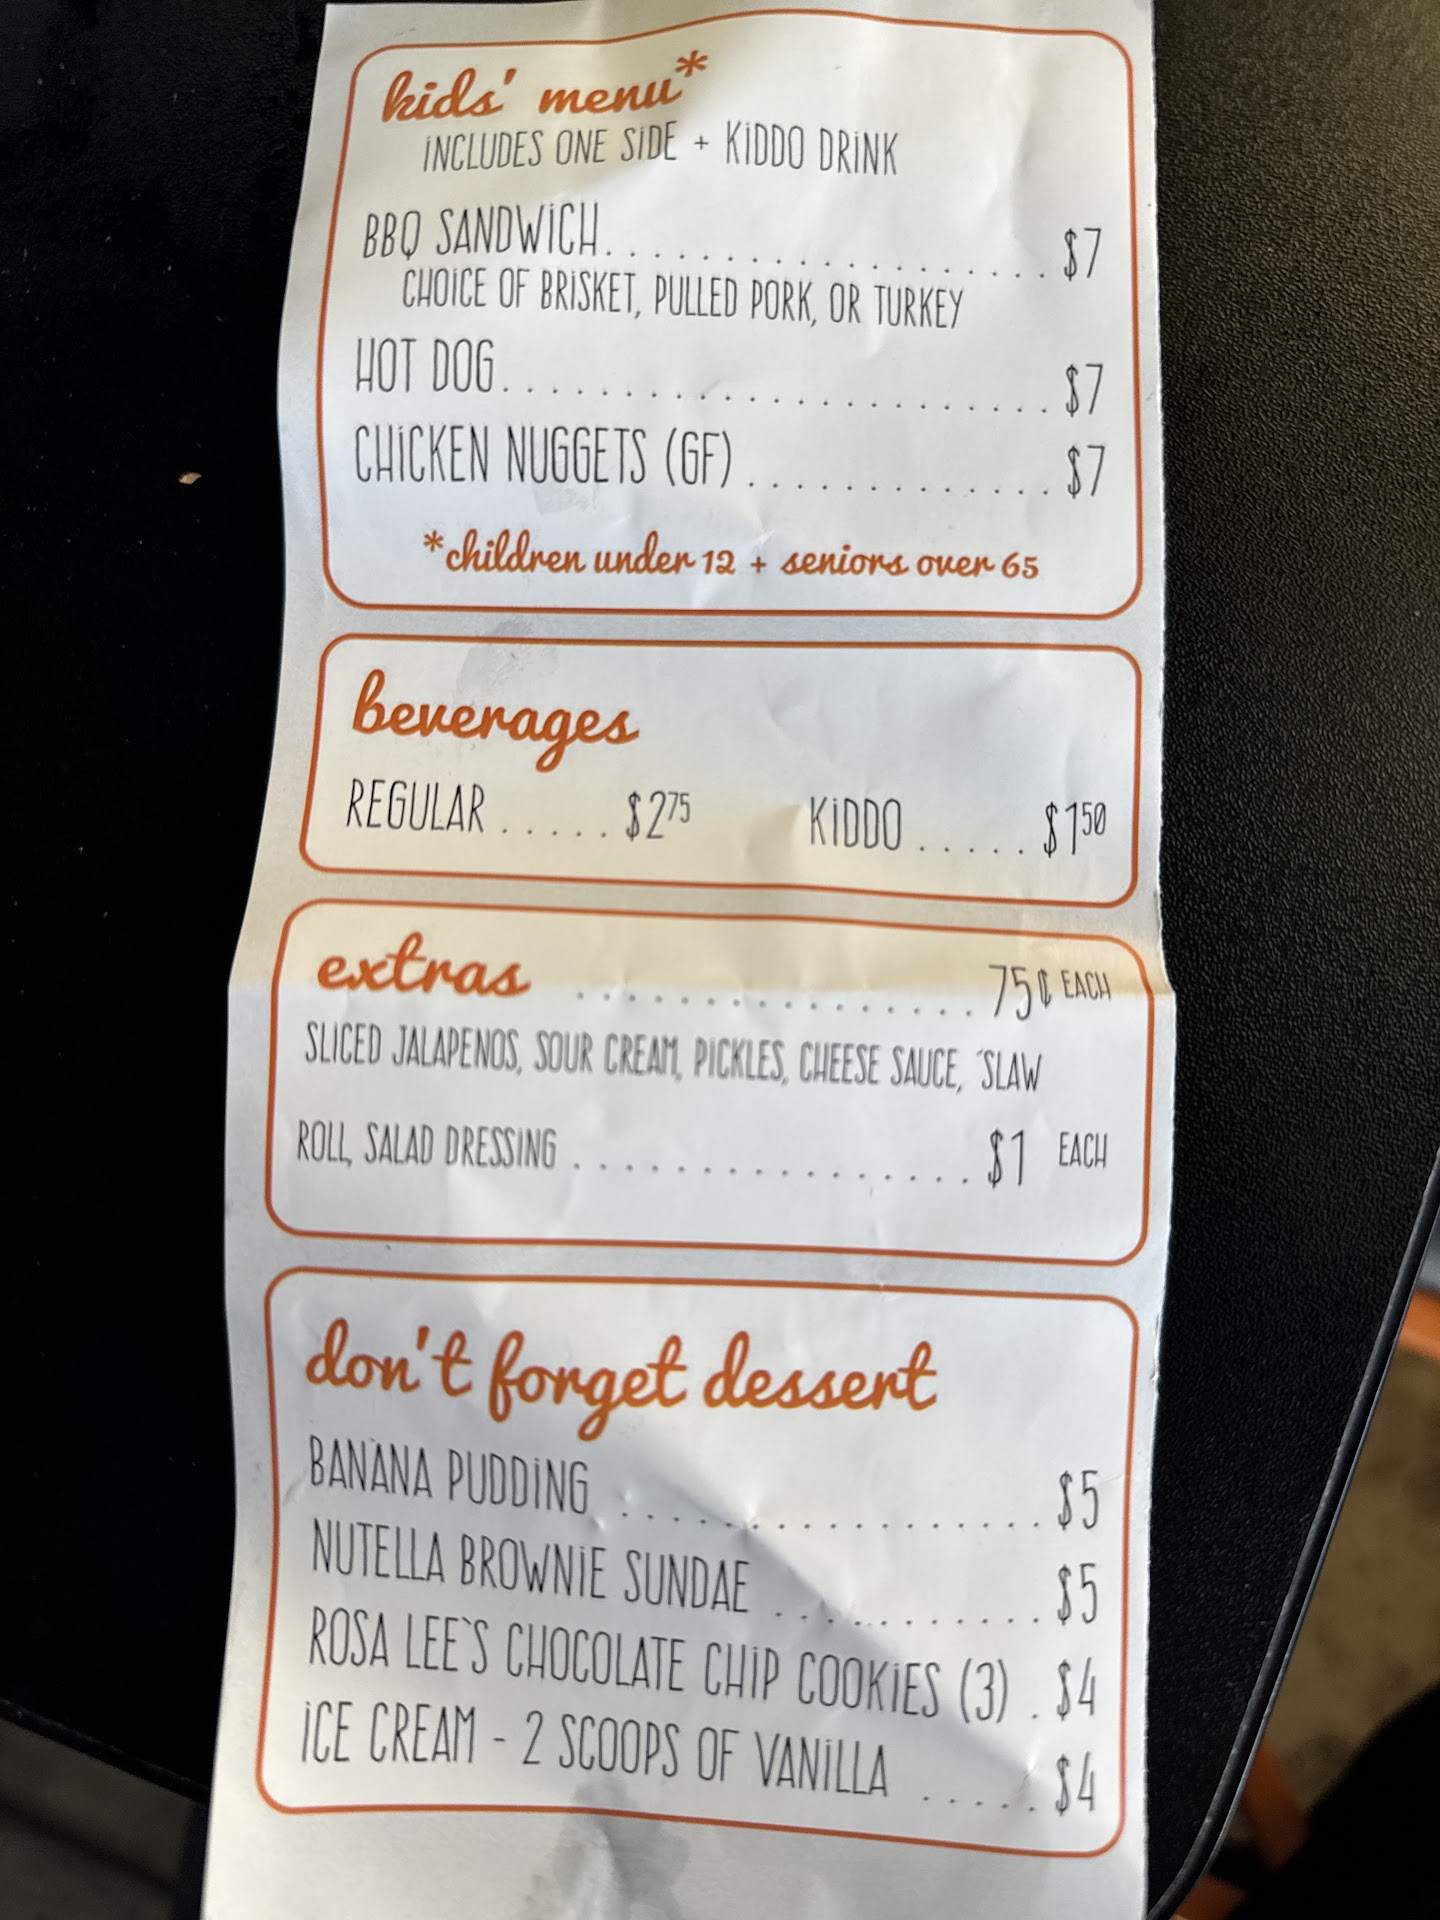 kids' menu*
INCLUDES ONE SIDE + KIDDO DRINK
BBQ SANDWICH. . . . . . . . . . . . . . . . . . . . $7
CHOICE OF BRISKET, PULLED PORK, OR TURKEY
HOT DOG. . . . . . . . . . . . . . . . . . . . . . $7
CHICKEN NUGGETS (GF) . . . . . . . . . . . . $7
*children under 12 + seniors over 65
beverages
REGULAR . . . . . $2⁷⁵ KIDDO . . . . . $1⁵⁰
extras . . . . . . . . . . . . . . . . 75¢ EACH
SLICED JALAPENOS, SOUR CREAM, PICKLES, CHEESE SAUCE, 'SLAW
ROLL, SALAD DRESSING . . . . . . . . . . . . . . . . $1 EACH
don't forget dessert
BANANA PUDDING . . . . . . . . . . . . . . . . . $5
NUTELLA BROWNIE SUNDAE . . . . . . . . . . . $5
ROSA LEE'S CHOCOLATE CHIP COOKIES (3) . $4
ICE CREAM - 2 SCOOPS OF VANILLA . . . . . $4